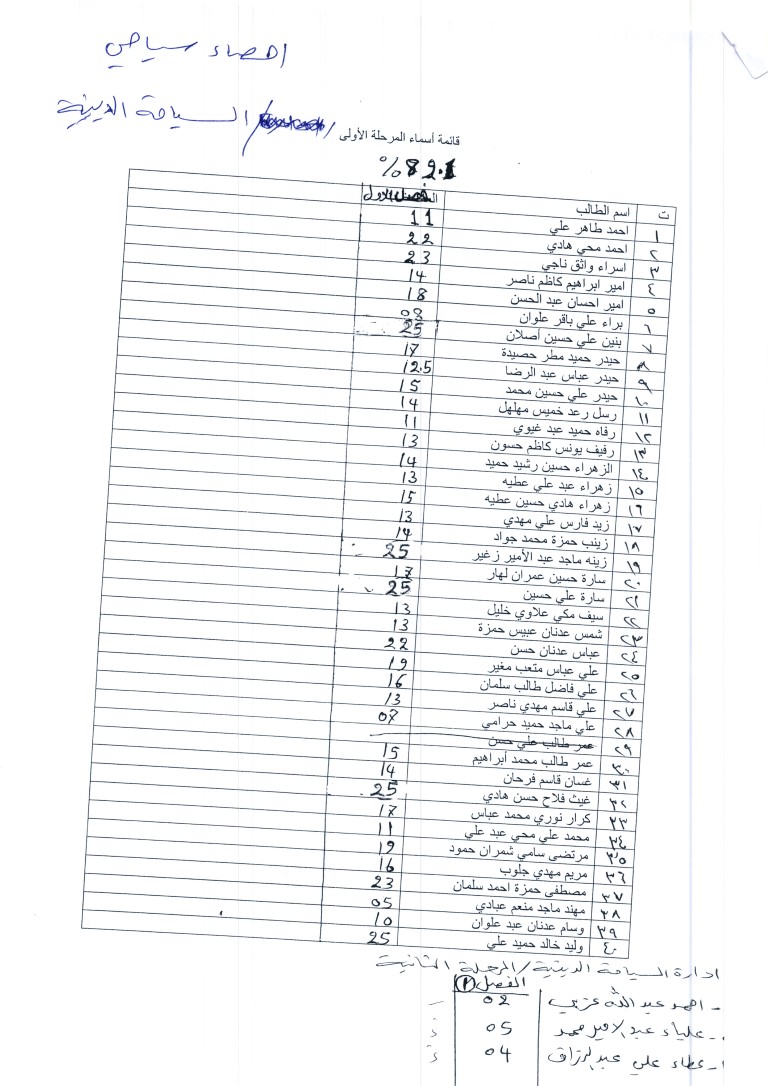 احصاء سياحي
السياحة الدينية /
قائمة أسماء المرحلة الأولى
%82.1
ت اسم الطالب الفصل الاول
١ احمد طاهر علي 11
٢ احمد محي هادي 22
٣ اسراء واثق ناجي 23
٤ امير ابراهيم كاظم ناصر 14
٥ امير احسان عبد الحسن 18
٦ براء علي باقر علوان 08
٧ بنين علي حسين أصلان 25
٨ حيدر حميد مطر حصيدة 17
٩ حيدر عباس عبد الرضا 12.5
١٠ حيدر علي حسين محمد 15
١١ رسل رعد خميس مهلهل 14
١٢ رفاه حميد عبد غيوي 11
١٣ رفيف يونس كاظم حسون 13
١٤ الزهراء حسين رشيد حميد 14
١٥ زهراء عبد علي عطيه 13
١٦ زهراء هادي حسين عطيه 15
١٧ زيد فارس علي مهدي 13
١٨ زينب حمزة محمد جواد 14
١٩ زينه ماجد عبد الأمير زغير 25
٢٠ سارة حسين عمران لهار 17
٢١ سارة علي حسين 25
٢٢ سيف مكي علاوي خليل 13
٢٣ شمس عدنان عبيس حمزة 13
٢٤ عباس عدنان حسن 22
٢٥ علي عباس متعب مغير 19
٢٦ علي فاضل طالب سلمان 16
٢٧ علي قاسم مهدي ناصر 13
٢٨ علي ماجد حميد حرامي 07
٢٩ عمر طالب علي حسن
٣٠ عمر طالب محمد أبراهيم 15
٣١ غسان قاسم فرحان 14
٣٢ غيث فلاح حسن هادي 25
٣٣ كرار نوري محمد عباس 17
٣٤ محمد علي محي عبد علي 11
٣٥ مرتضى سامي شمران حمود 19
٣٦ مريم مهدي جلوب 16
٣٧ مصطفى حمزة احمد سلمان 23
٣٨ مهند ماجد منعم عبادي 05
٣٩ وسام عدنان عبد علوان 10
٤٠ وليد خالد حميد علي 25
ادارة السياحة الدينية / المرحلة الثانية
الفصل ①
- احمد عبد الله عزبي 02
- علياء عبد الامير محمد 05
- عطاء علي عبد الرزاق 04